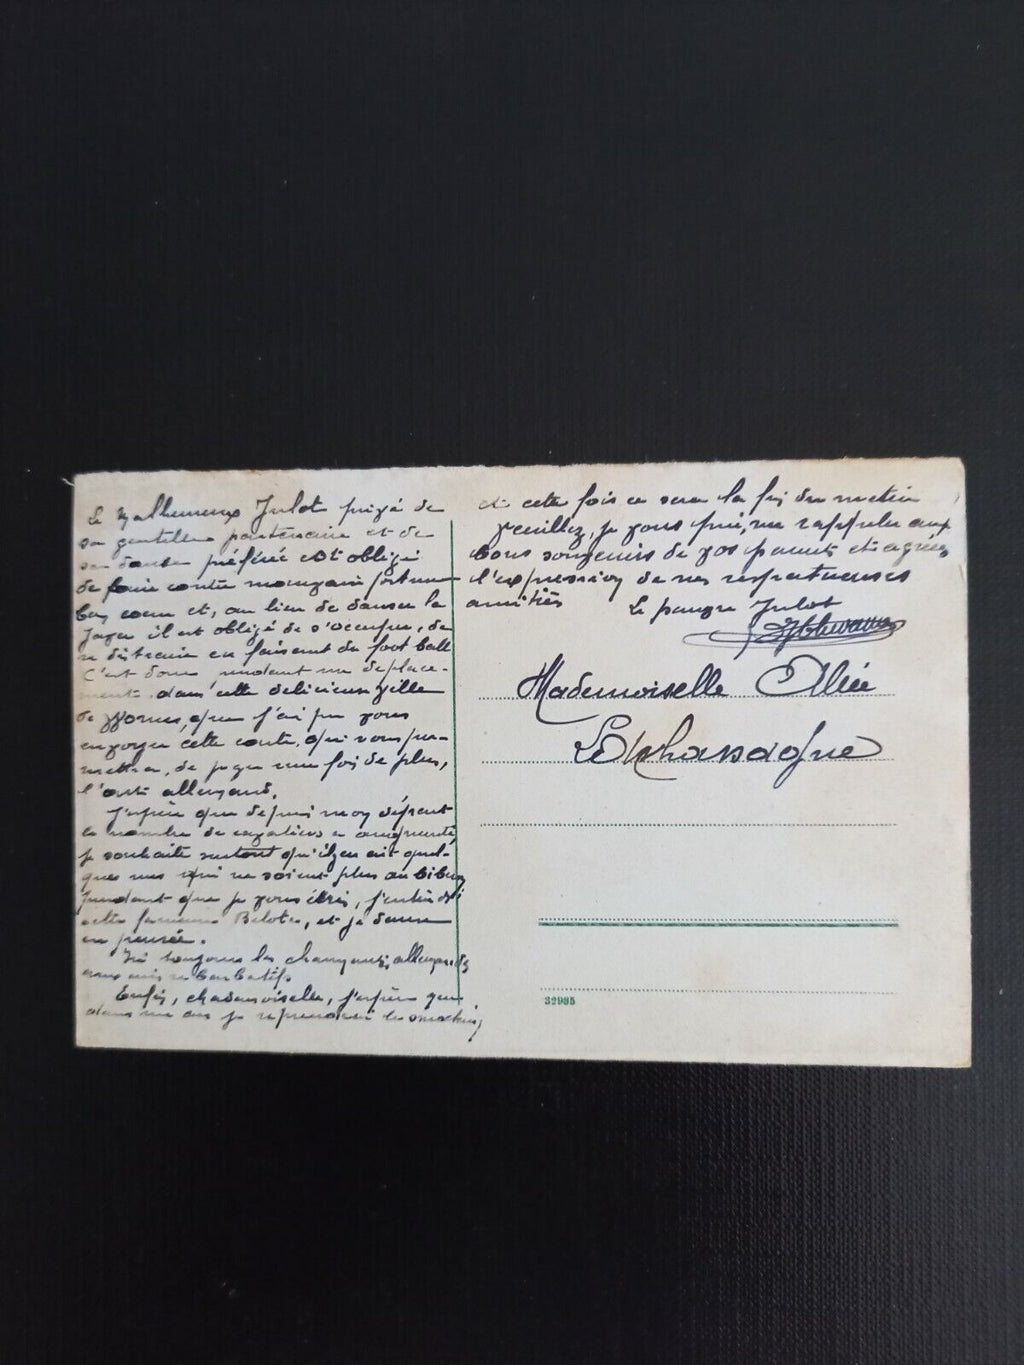 Le Malheureux Julot privé de
sa gentille partenaire et de
sa danse préférée est obligé
de faire contre mauvaise fortune
bon cœur et, au lieu de danser la
Java il est obligé de s'occuper, de
se distraire en faisant du foot ball
C'est donc pendant un déplace-
ment dans cette délicieuse ville
de Worms, que j'ai pu vous
envoyer cette carte, qui vous per-
mettra, de juger une fois de plus,
l'art allemand.
J'espère que depuis mon départ
le nombre de cavaliers a augmenté,
je souhaite surtout qu'il y en ait quel-
ques uns qui ne soient plus au biberon
pendant que je vous écris, j'entends
cette fameuse Belote, et je danse
en pensée.
Ici toujours les
aux airs rébarbatifs
Enfin, Mademoiselle, j'espère que
dans un an je reprendrai le
et cette fois ce sera la fin du
Veuillez, je vous prie, me rappeler aux
bons souvenirs de vos parents et agréez
l'expression de mes respectueuses
amitiés Le pauvre Julot
Mademoiselle Alice
Lachassagne
32985